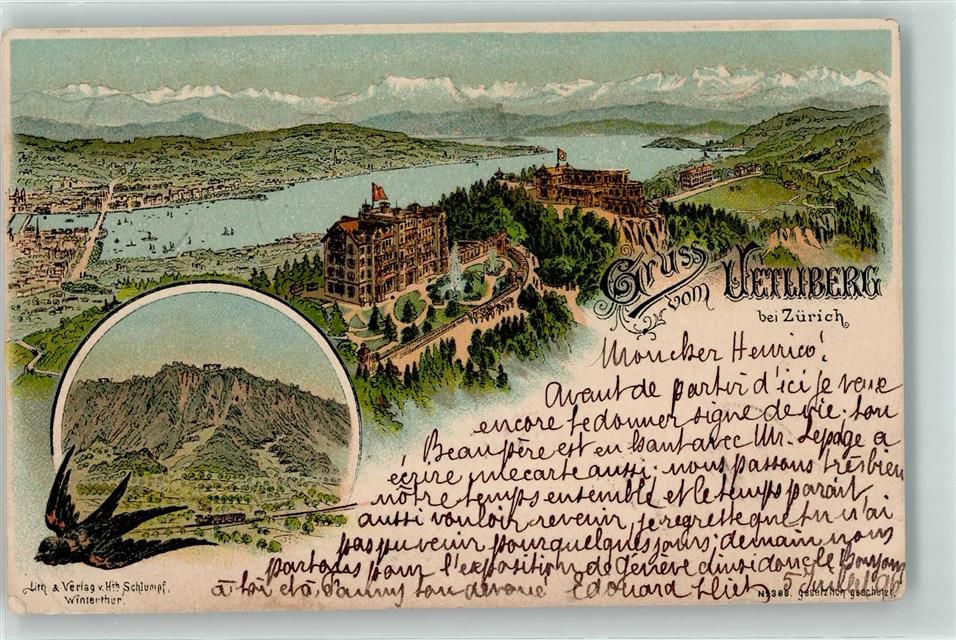 Gruss
vom UETLIBERG
bei Zürich
Mon cher Henrico!
Avant de partir d'ici je veux
encore te donner signe de vie. ton
Beau père est en haut avec Mr. Lepage a
écrire une carte aussi; nous passons très bien
notre temps ensemble et le temps parait
aussi vouloir revenir, je regrette que tu n'ai
pas pu venir pour quelques jours; demain nous
partons pour l'exposition de Genève ainsi donc le Bonjour
à toi et à Fanny ton dévoué Edouard
5 Juillet 96
Lith. & Verlag v. Hch. Schlumpf,
Winterthur.
No 388. gesetzlich geschützt.